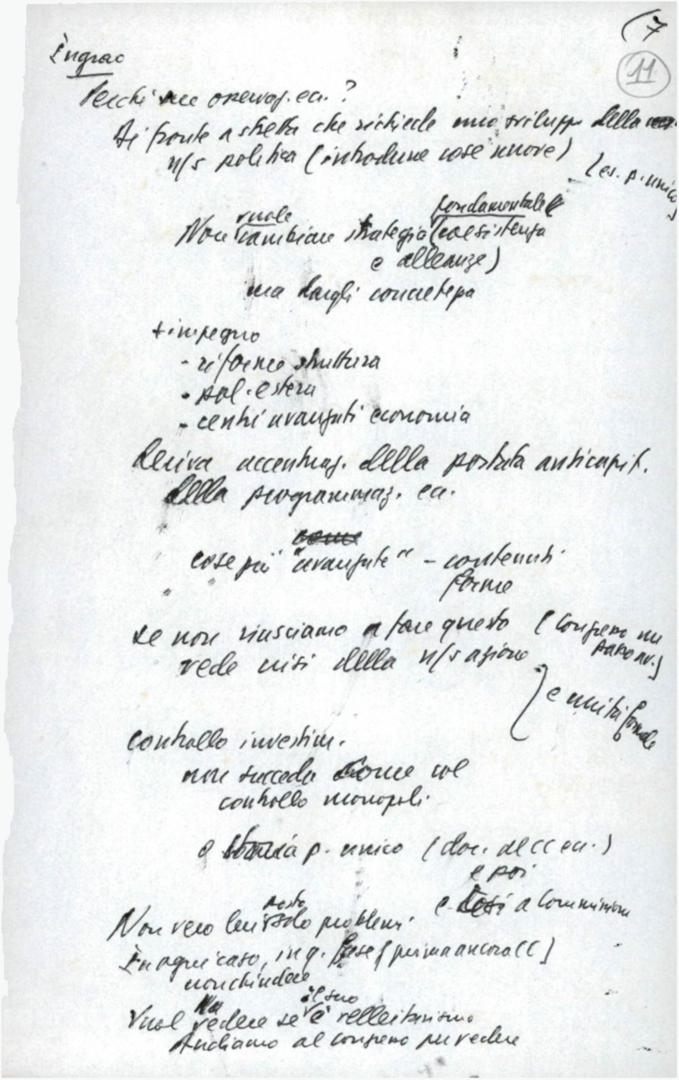 (7
11
Ingrao
Perché me osservaz. ecc. ?
di fronte a stretta che richiede uno sviluppo della
n/s politica (introdurre cose nuove)
(es. p. unico)
vuole fondamentale
Non cambiare strategia (coesistenza
e alleanze)
ma dargli concretezza
+ impegno
- riforme struttura
- pol. estera
- centri avanzati economia
deriva accentuaz. della portata anticapit.
della programmaz. ecc.
cose più "avanzate" - contenuti
forme
se non riusciamo a fare questo (Congresso un
passo av.)
vede crisi della n/s azione
e unità formale
controllo investim.
non succeda come col
controllo monopoli
o p. unico (doc. al CC ecc.)
e poi
e a Commissione
posto
Non vero lui solo problemi
In ogni caso, in q. fase [prima ancora CC]
non chiudere
Ma il suo
Vuol vedere se è velleitarismo
Andiamo al congresso per vedere